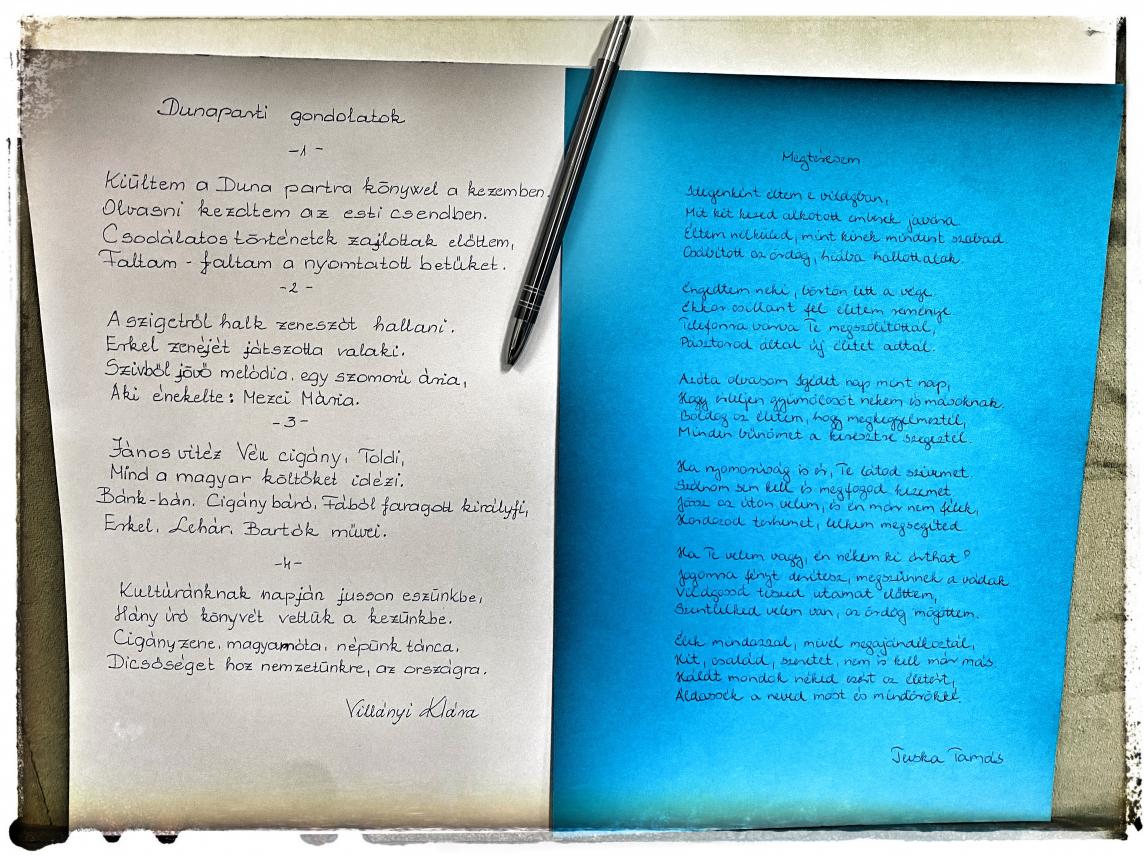 Dunaparti gondolatok
-1-
Kiültem a Duna partra könyvvel a kezemben.
Olvasni kezdtem az esti csendben.
Csodálatos történetek zajlottak előttem,
Faltam - faltam a nyomtatott betűket.
-2-
A szigetről halk zeneszót hallani.
Erkel zenéjét játszotta valaki.
Szívből jövő melódia, egy szomorú ária,
Aki énekelte: Mezei Mária.
-3-
János vitéz Vén cigány, Toldi,
Mind a magyar költőket idézi.
Bánk-bán, Cigány báró, Fából faragott királyfi,
Erkel, Lehár, Bartók művei.
-4-
Kultúránknak napján jusson eszünkbe,
Hány író könyvét vettük a kezünkbe.
Cigányzene, magyarnóta, népünk tánca,
Dicsőséget hoz nemzetünkre, az országra.
Villányi Klára
Megtérésem
Idegenként éltem e világban,
Mit két kezed alkotott emberek javára
Éltem nélküled, mint kinek mindent szabad.
Csábított az ördög, hiába hallottalak.
Engedtem neki, börtön lett a vége.
Ekkor csillant fel életem reménye.
Telefonra várva Te megszólítottál,
Pásztorod által új életet adtál.
Azóta olvasom Igédet nap mint nap,
Hogy érleljen gyümölcsöt nekem és másoknak.
Boldog az életem, hogy megkegyelmeztél,
Minden bűnömet a keresztre szegeztél.
Ha nyomorúság is ér, Te látod szívemet
Szólnom sem kell és megfogod kezemet
Jössz az úton velem, is én már nem félek,
Hordozod terhemet, lelkem megsegíted.
Ha Te velem vagy, én nékem ki árthat?
Jogomra fényt derítesz, megszűnnek a vádak
Világosod tiszed utamat előttem,
Szentlelked velem van, az ördög mögöttem.
Élek mindazzal, mivel megajándékoztál,
Hit, család, szeretet, nem is kell már más.
Hálát mondok néked ezért az életért,
Áldassék a neved most és mindörökké.
Tuska Tamás